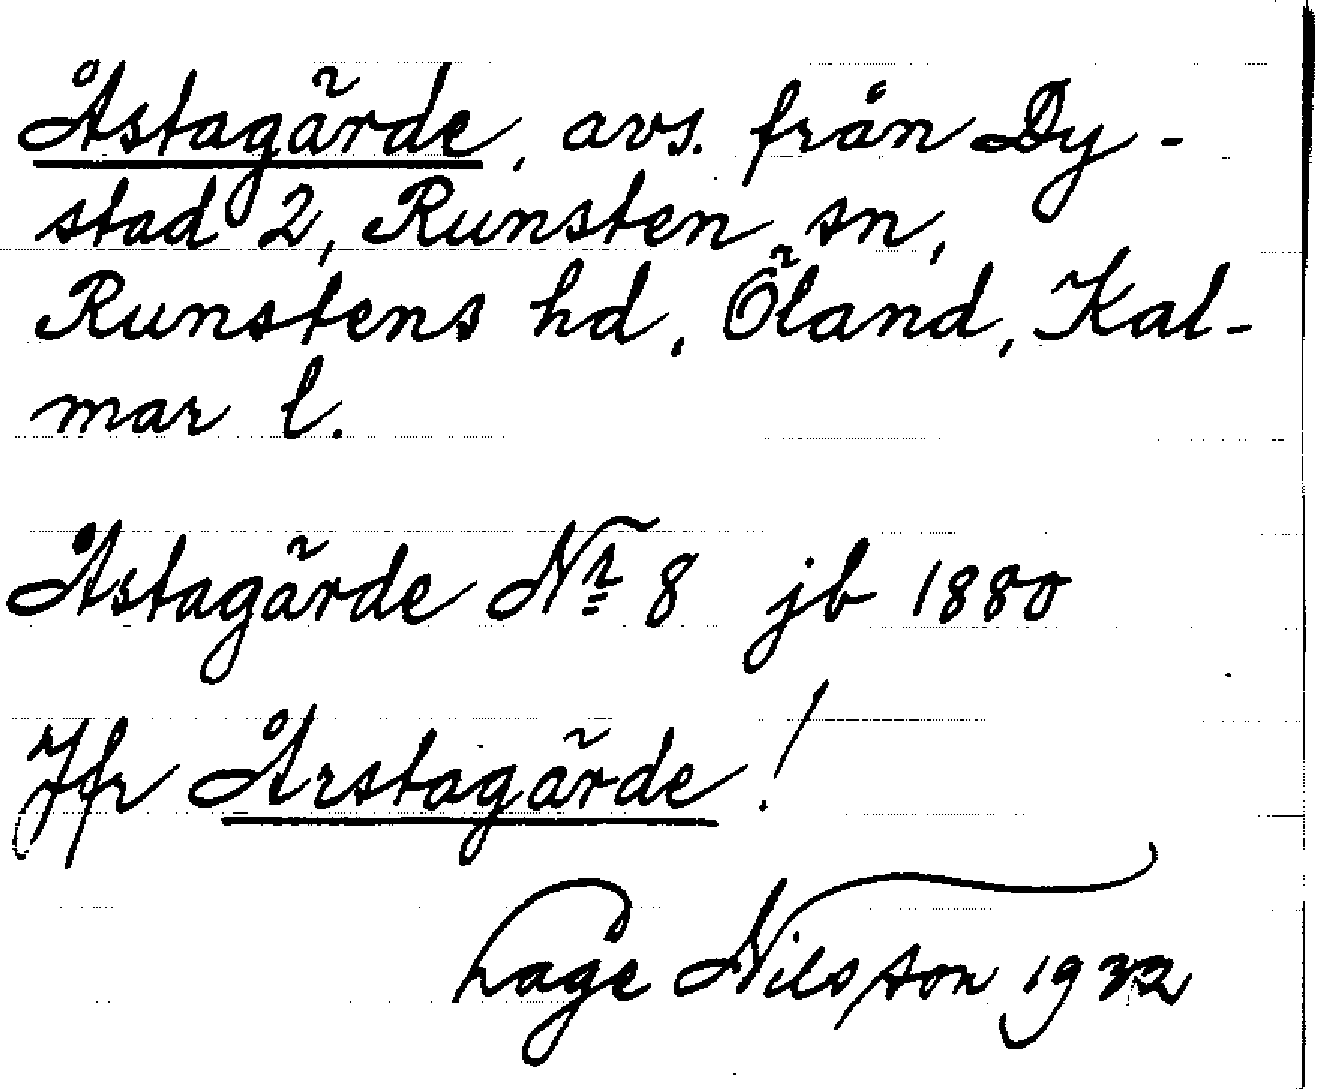 Åstagärde, avs. från Dy-
stad 2, Runsten sn,
Runstens hd, Öland, Kal-
mar l.
Åstagärde Nr 8 jb 1880
Jfr Årstagärde!
Lage Nilsson 1922